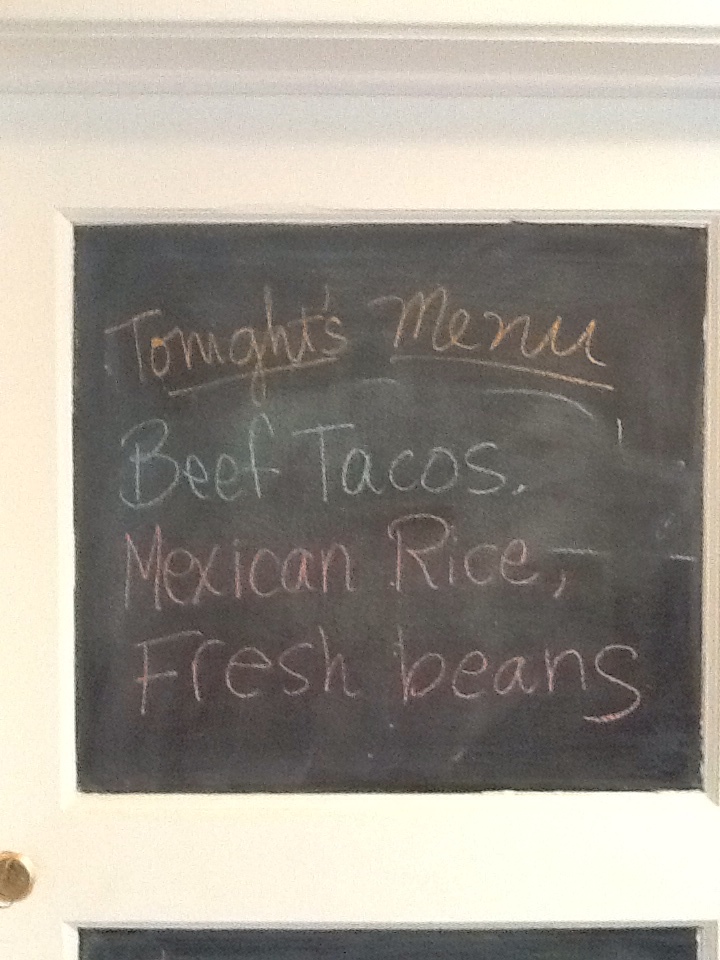 Tonight's Menu
Beef Tacos.
Mexican Rice,
Fresh beans